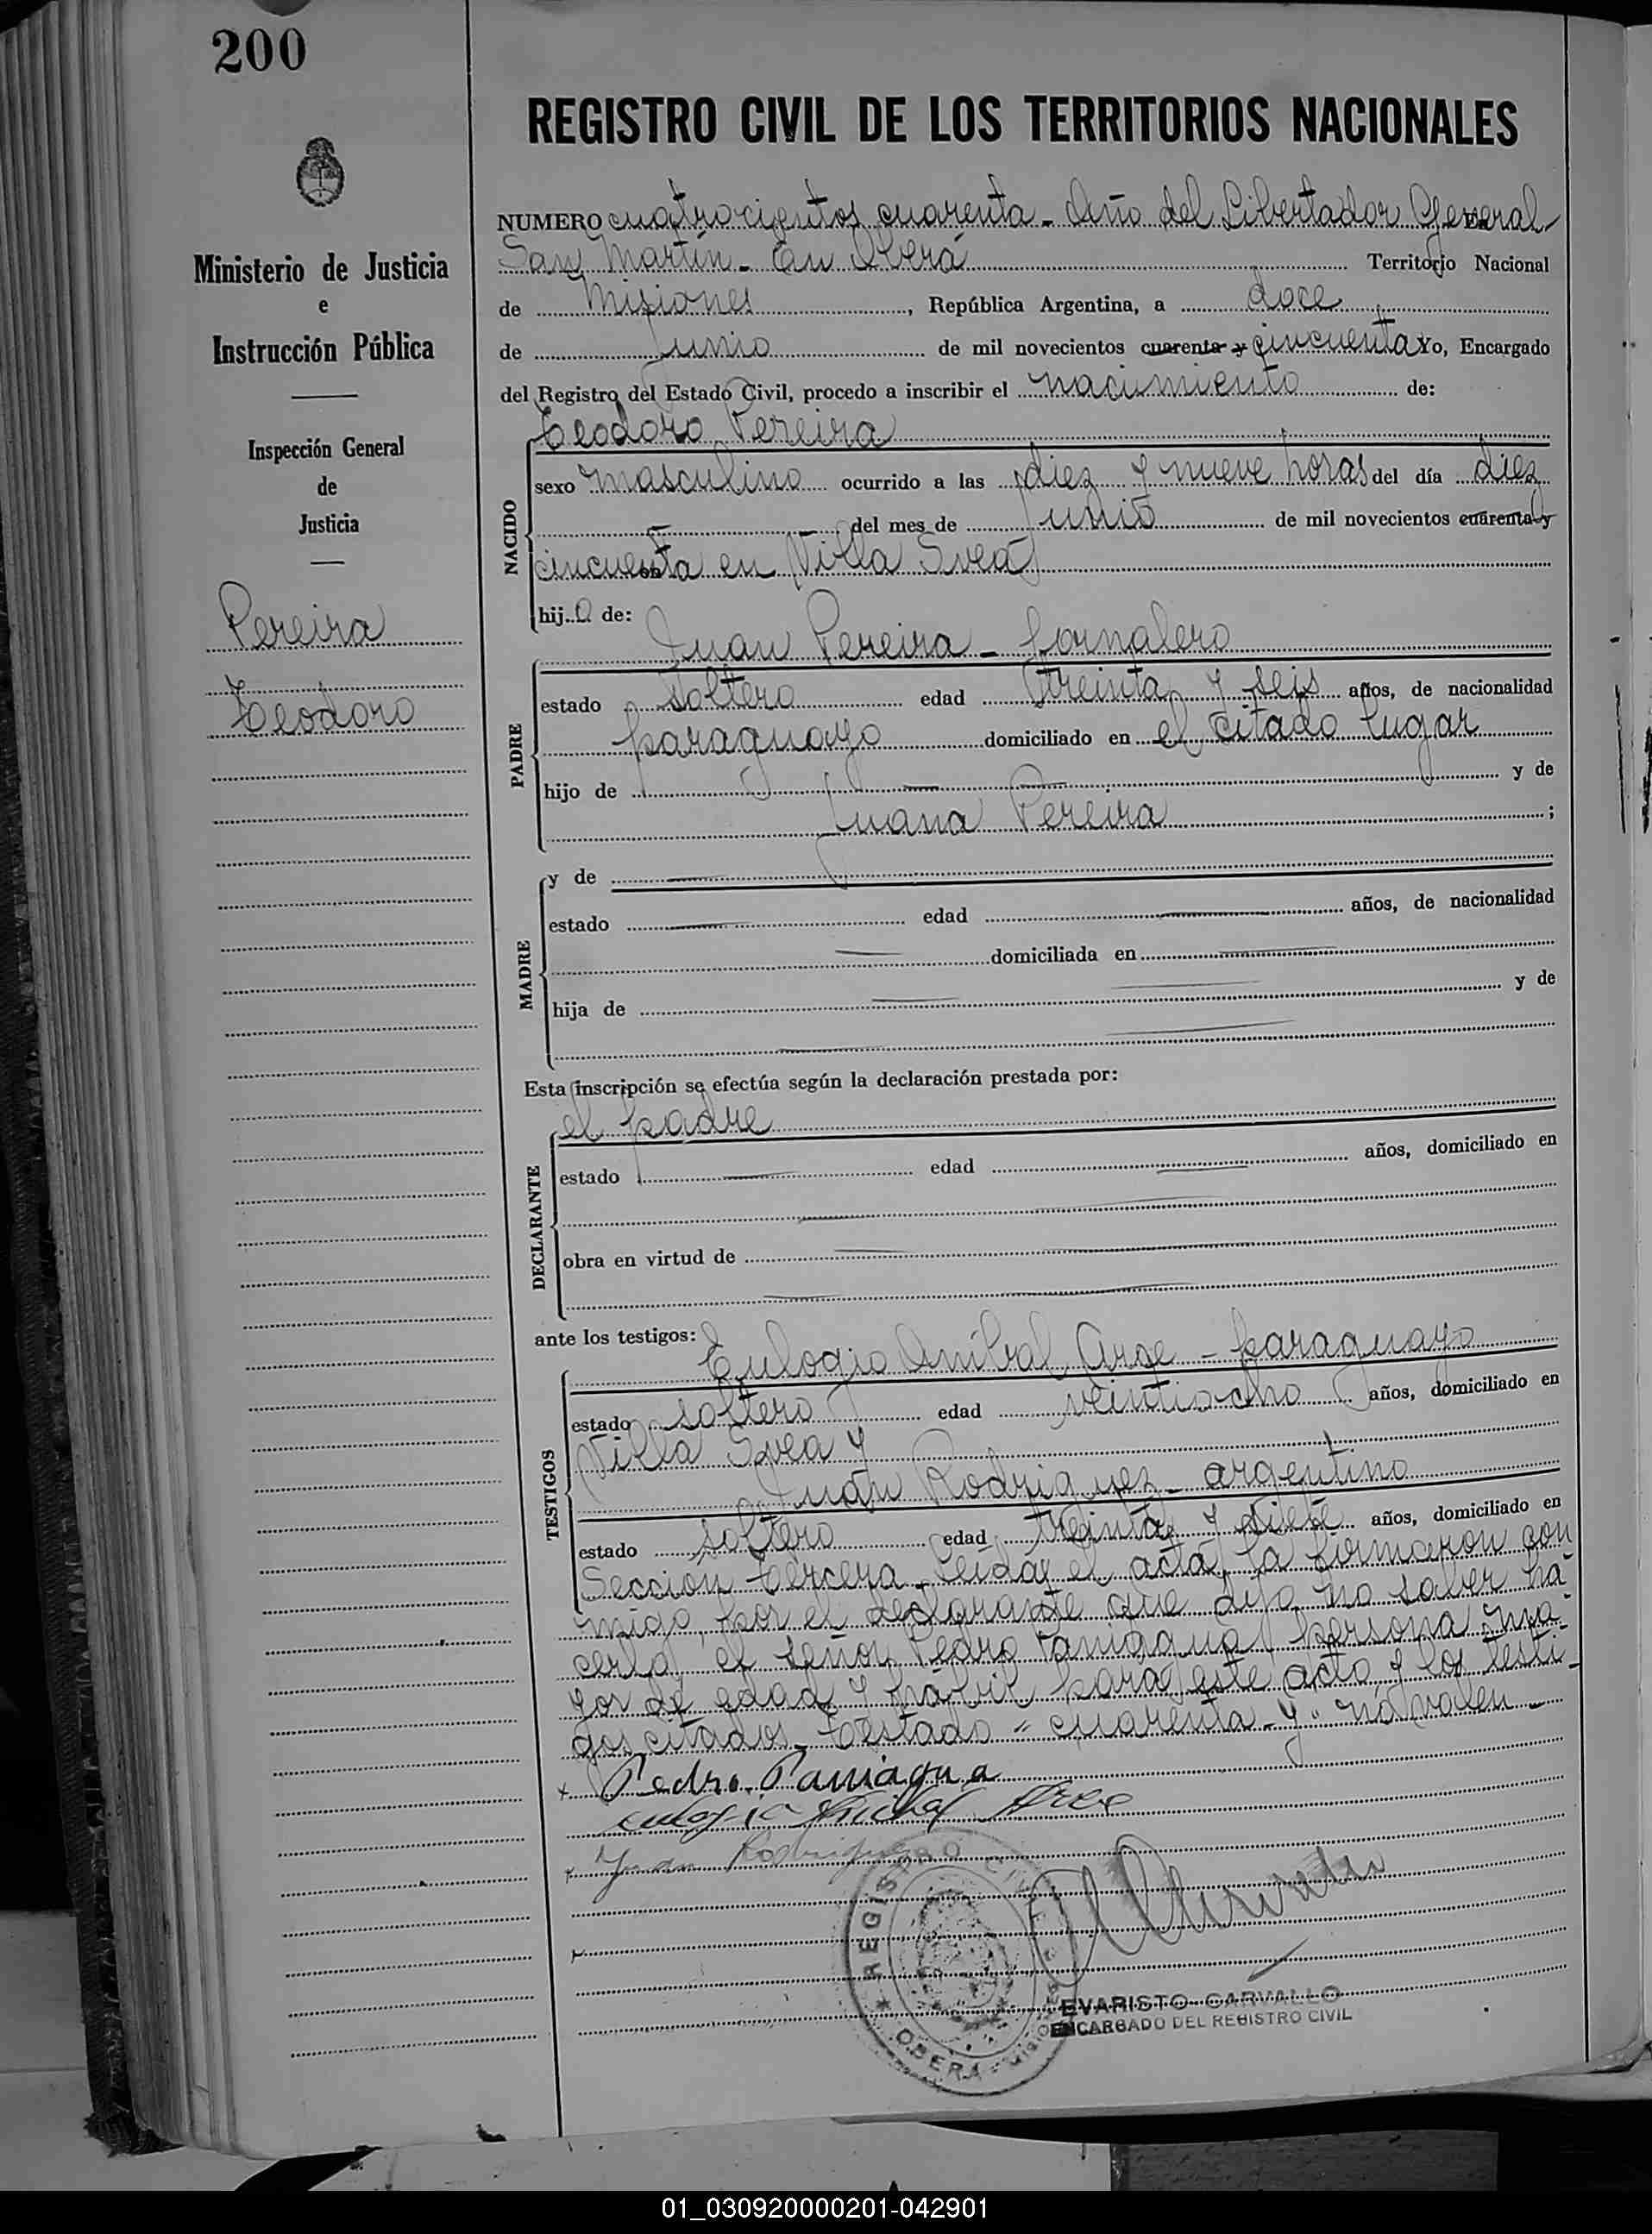 200
REGISTRO CIVIL DE LOS TERRITORIOS NACIONALES
Ministerio de Justicia
e
Instrucción Pública
Inspección General
de
Justicia
Pereira
Teodoro
NUMERO cuatrocientos cuarenta - Año del Libertador General
San Martín - En Oberá Territorio Nacional
de Misiones, República Argentina, a doce
de Junio de mil novecientos cuarenta y cincuenta Yo, Encargado
del Registro del Estado Civil, procedo a inscribir el nacimiento de:
Teodoro Pereira
NACIDO
sexo masculino ocurrido a las diez y nueve horas del día diez
del mes de Junio de mil novecientos cuarenta y
cincuenta en Villa Svea
hijo de:
Juan Pereira - Jornalero
PADRE
estado soltero edad treinta y seis años, de nacionalidad
paraguayo domiciliado en el citado lugar
hijo de — y de
Juana Pereira ;
MADRE
y de —
estado — edad — años, de nacionalidad
— domiciliada en —
hija de — y de
—
Esta inscripción se efectúa según la declaración prestada por:
el padre
DECLARANTE
estado — edad — años, domiciliado en
—
obra en virtud de —
—
ante los testigos:
Eulogio Anibal Arce - paraguayo
TESTIGOS
estado soltero edad veintiocho años, domiciliado en
Villa Svea y
Juan Rodriguez - argentino
estado soltero edad treinta y siete años, domiciliado en
Seccion tercera - Leída el acta, la firmaron con
migo, por el declarante que dijo no saber ha-
cerlo, el señor Pedro Paniagua persona ma-
yor de edad y hábil para este acto y los testi-
gos citados - Testado "cuarenta - y" no valen -
Pedro Paniagua
Eulogio Anibal Arce
Juan Rodriguez
REGISTRO CIVIL
OBERA - MISIONES
EVARISTO CARVALLO
ENCARGADO DEL REGISTRO CIVIL
01_030920000201-042901